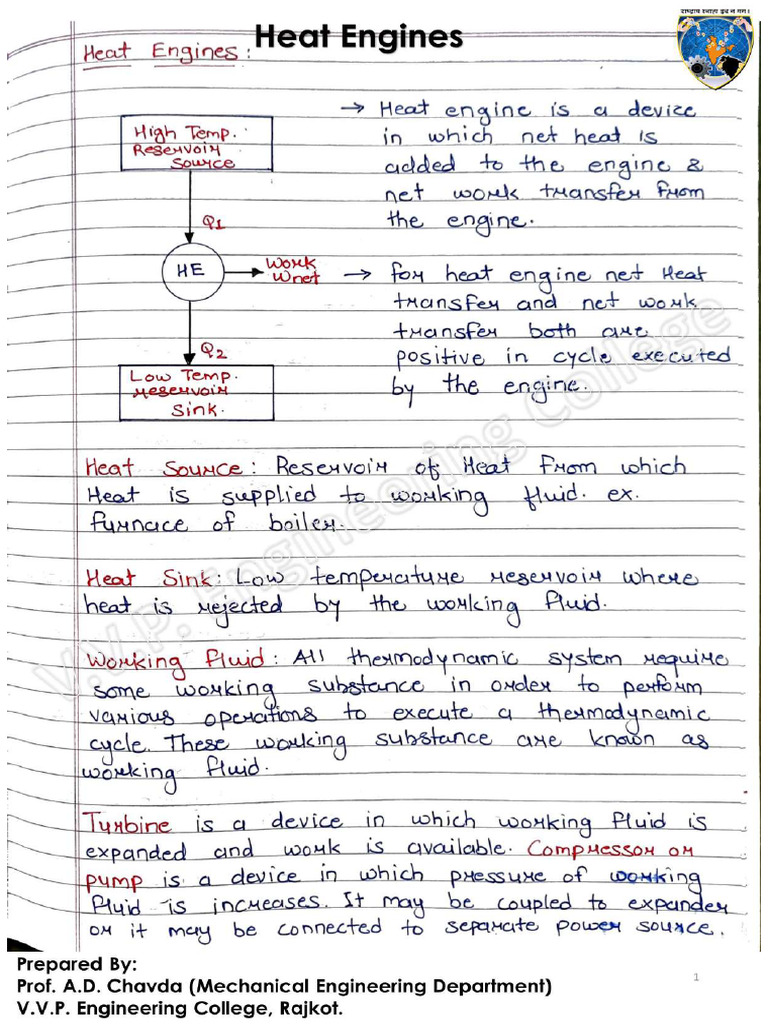 Heat Engines
राष्ट्राय स्वाहा इदं न मम।
Heat Engines:
High Temp.
Reservoir
Source
Q1
HE
Work
Wnet
Q2
Low Temp.
reservoir
Sink.
→ Heat engine is a device
in which net heat is
added to the engine &
net work transfer from
the engine.
→ for heat engine net Heat
transfer and net work
transfer both are
positive in cycle executed
by the engine.
Heat Source: Reservoir of Heat from which
Heat is supplied to working fluid. ex.
furnace of boiler.
Heat Sink: Low temperature reservoir where
heat is rejected by the working fluid.
Working fluid: All thermodynamic system require
some working substance in order to perform
various operations to execute a thermodynamic
cycle. These working substance are known as
working fluid.
Turbine is a device in which working fluid is
expanded and work is available. Compressor or
pump is a device in which pressure of working
fluid is increases. It may be coupled to expander
or it may be connected to separate power source.
V.V.P. Engineering College
Prepared By:
Prof. A.D. Chavda (Mechanical Engineering Department)
V.V.P. Engineering College, Rajkot.
1